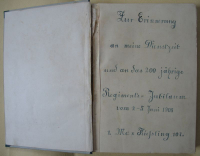 Zur Erinnerung
an meine Dienstzeit
und an das 200 jährige
Regiments Jubiläum
vom 6-8. Juni